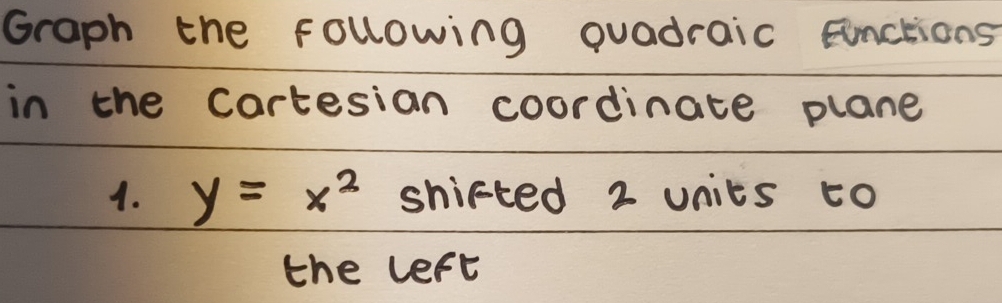 Graph the following quadraic functions
in the Cartesian coordinate plane
1. y = x² shifted 2 units to
the left